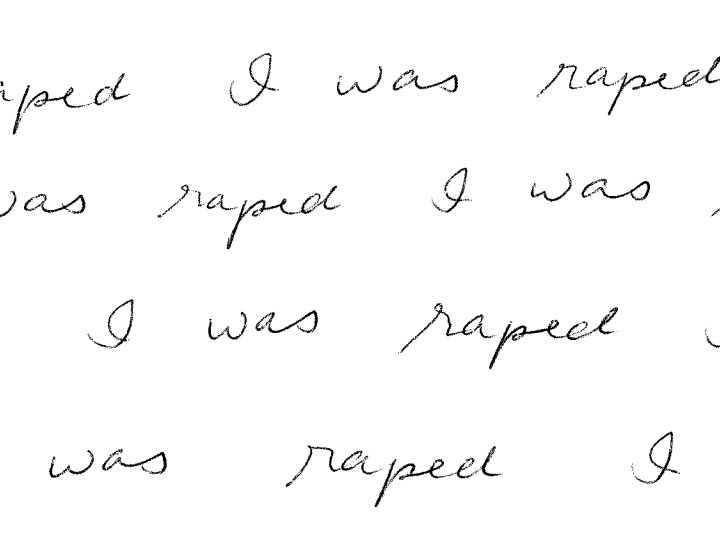 raped I was raped
was raped I was
I was raped
was raped I